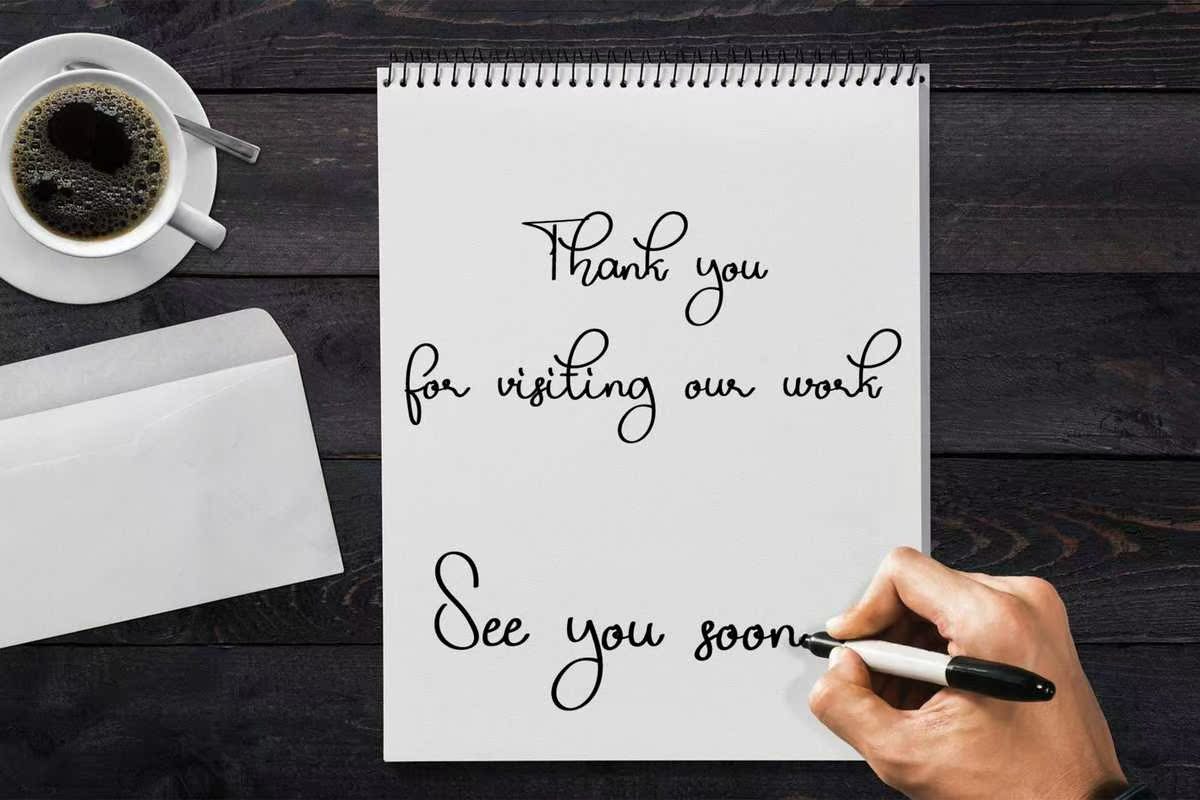 Thank you
for visiting our work
See you soon